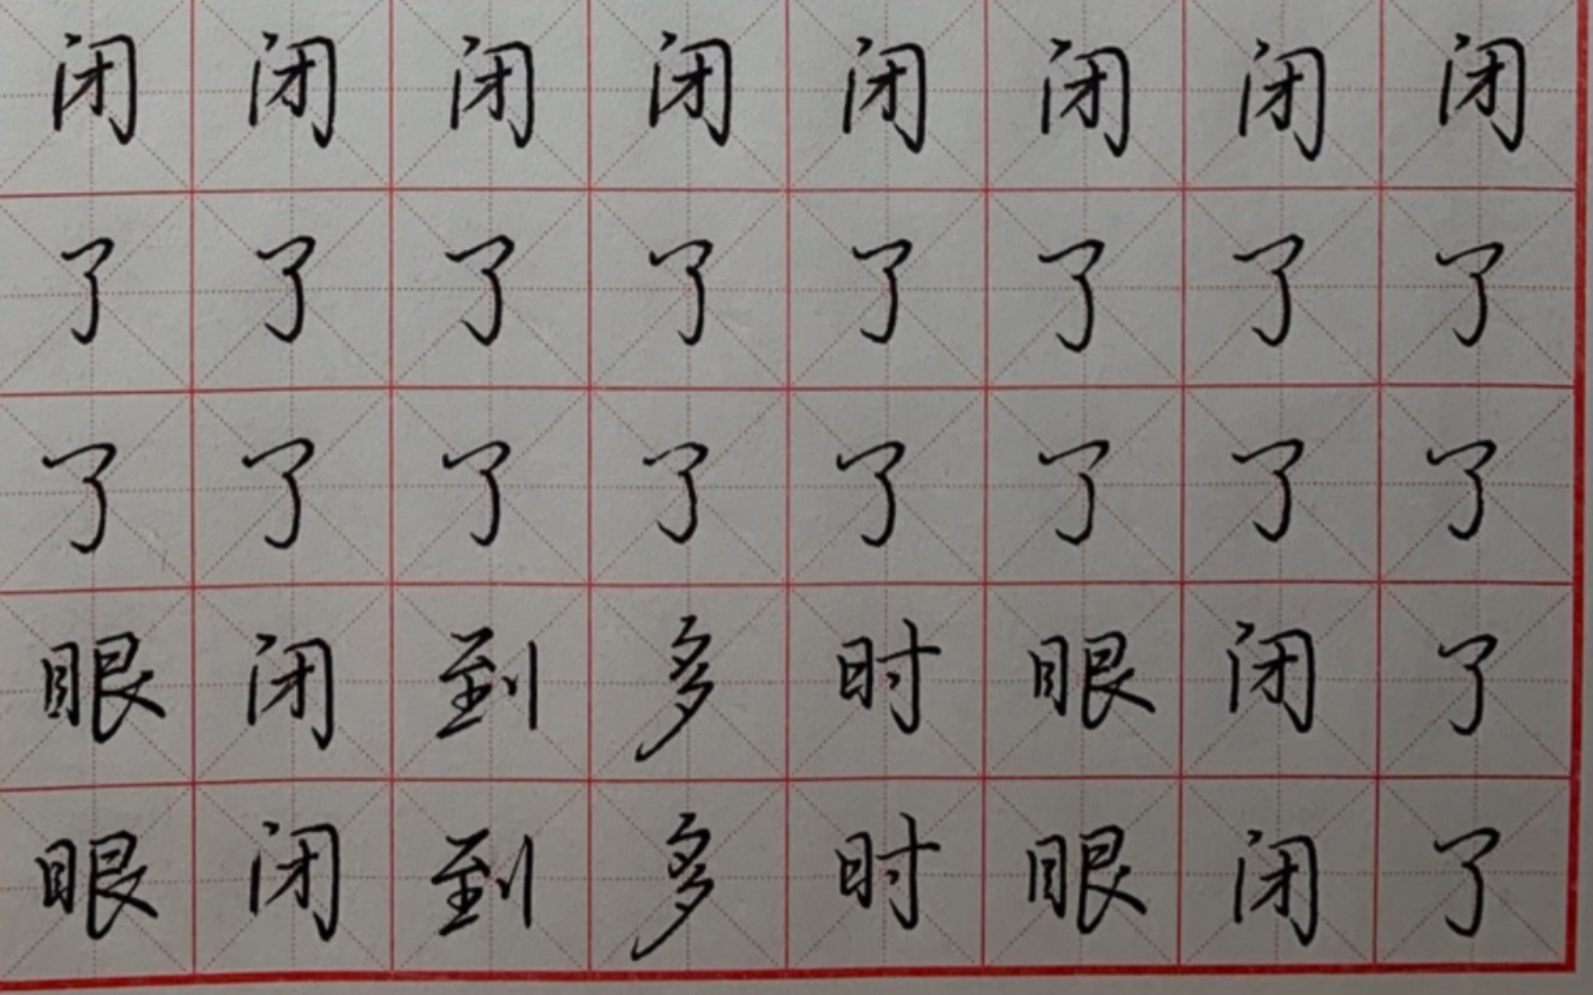 闭闭闭闭闭闭闭闭
了了了了了了了了
了了了了了了了了
眼闭到多时眼闭了
眼闭到多时眼闭了